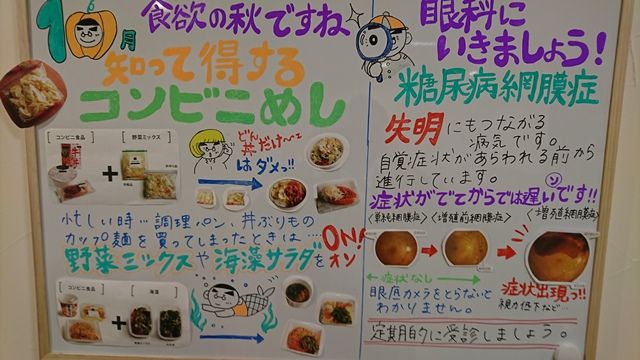 10月
食欲の秋ですね
知って得する
コンビニめし
コンビニ食品
野菜ミックス
どん
丼だけ〜って
はダメっ!!
忙しい時…調理パン、丼ぶりもの
カップ麺を買ってしまったときは…
野菜ミックスや海藻サラダをON!
オン
コンビニ食品
海藻
眼科に
いきましょう!
糖尿病網膜症
失明にもつながる
病気です。
自覚症状があらわれる前から
進行しています。
症状がでてからでは遅いです!!
<単純網膜症>
<増殖前網膜症>
<増殖網膜症>
症状なし
眼底カメラをとらないと
わかりません。
症状出現っ!!
視力低下など…
定期的に受診しましょう。